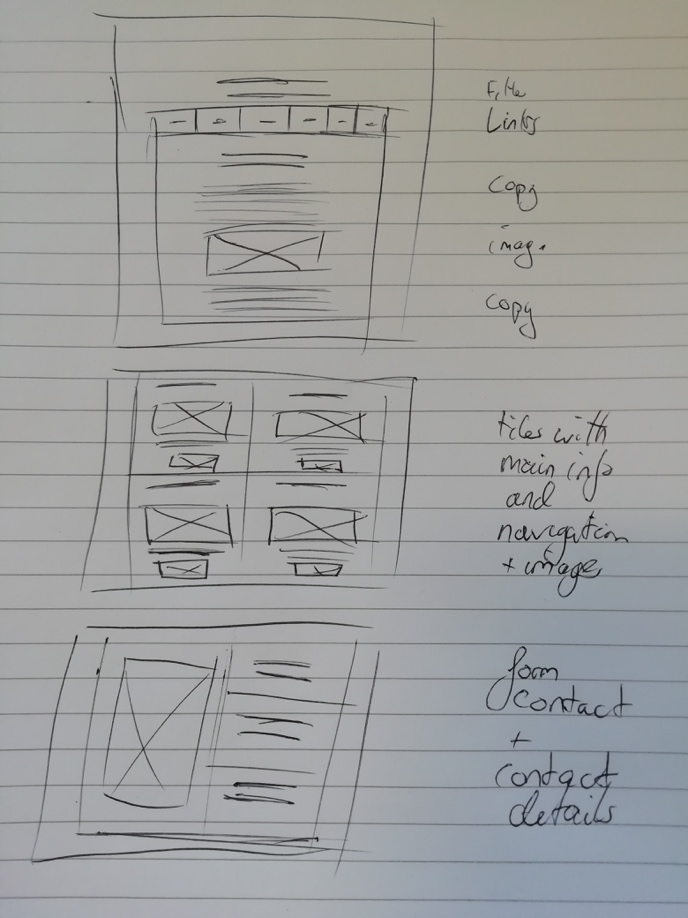 Links
Copy
imag.
Copy
tiles with
main info
and
navigation
+ images
form
contact
+
contact
details